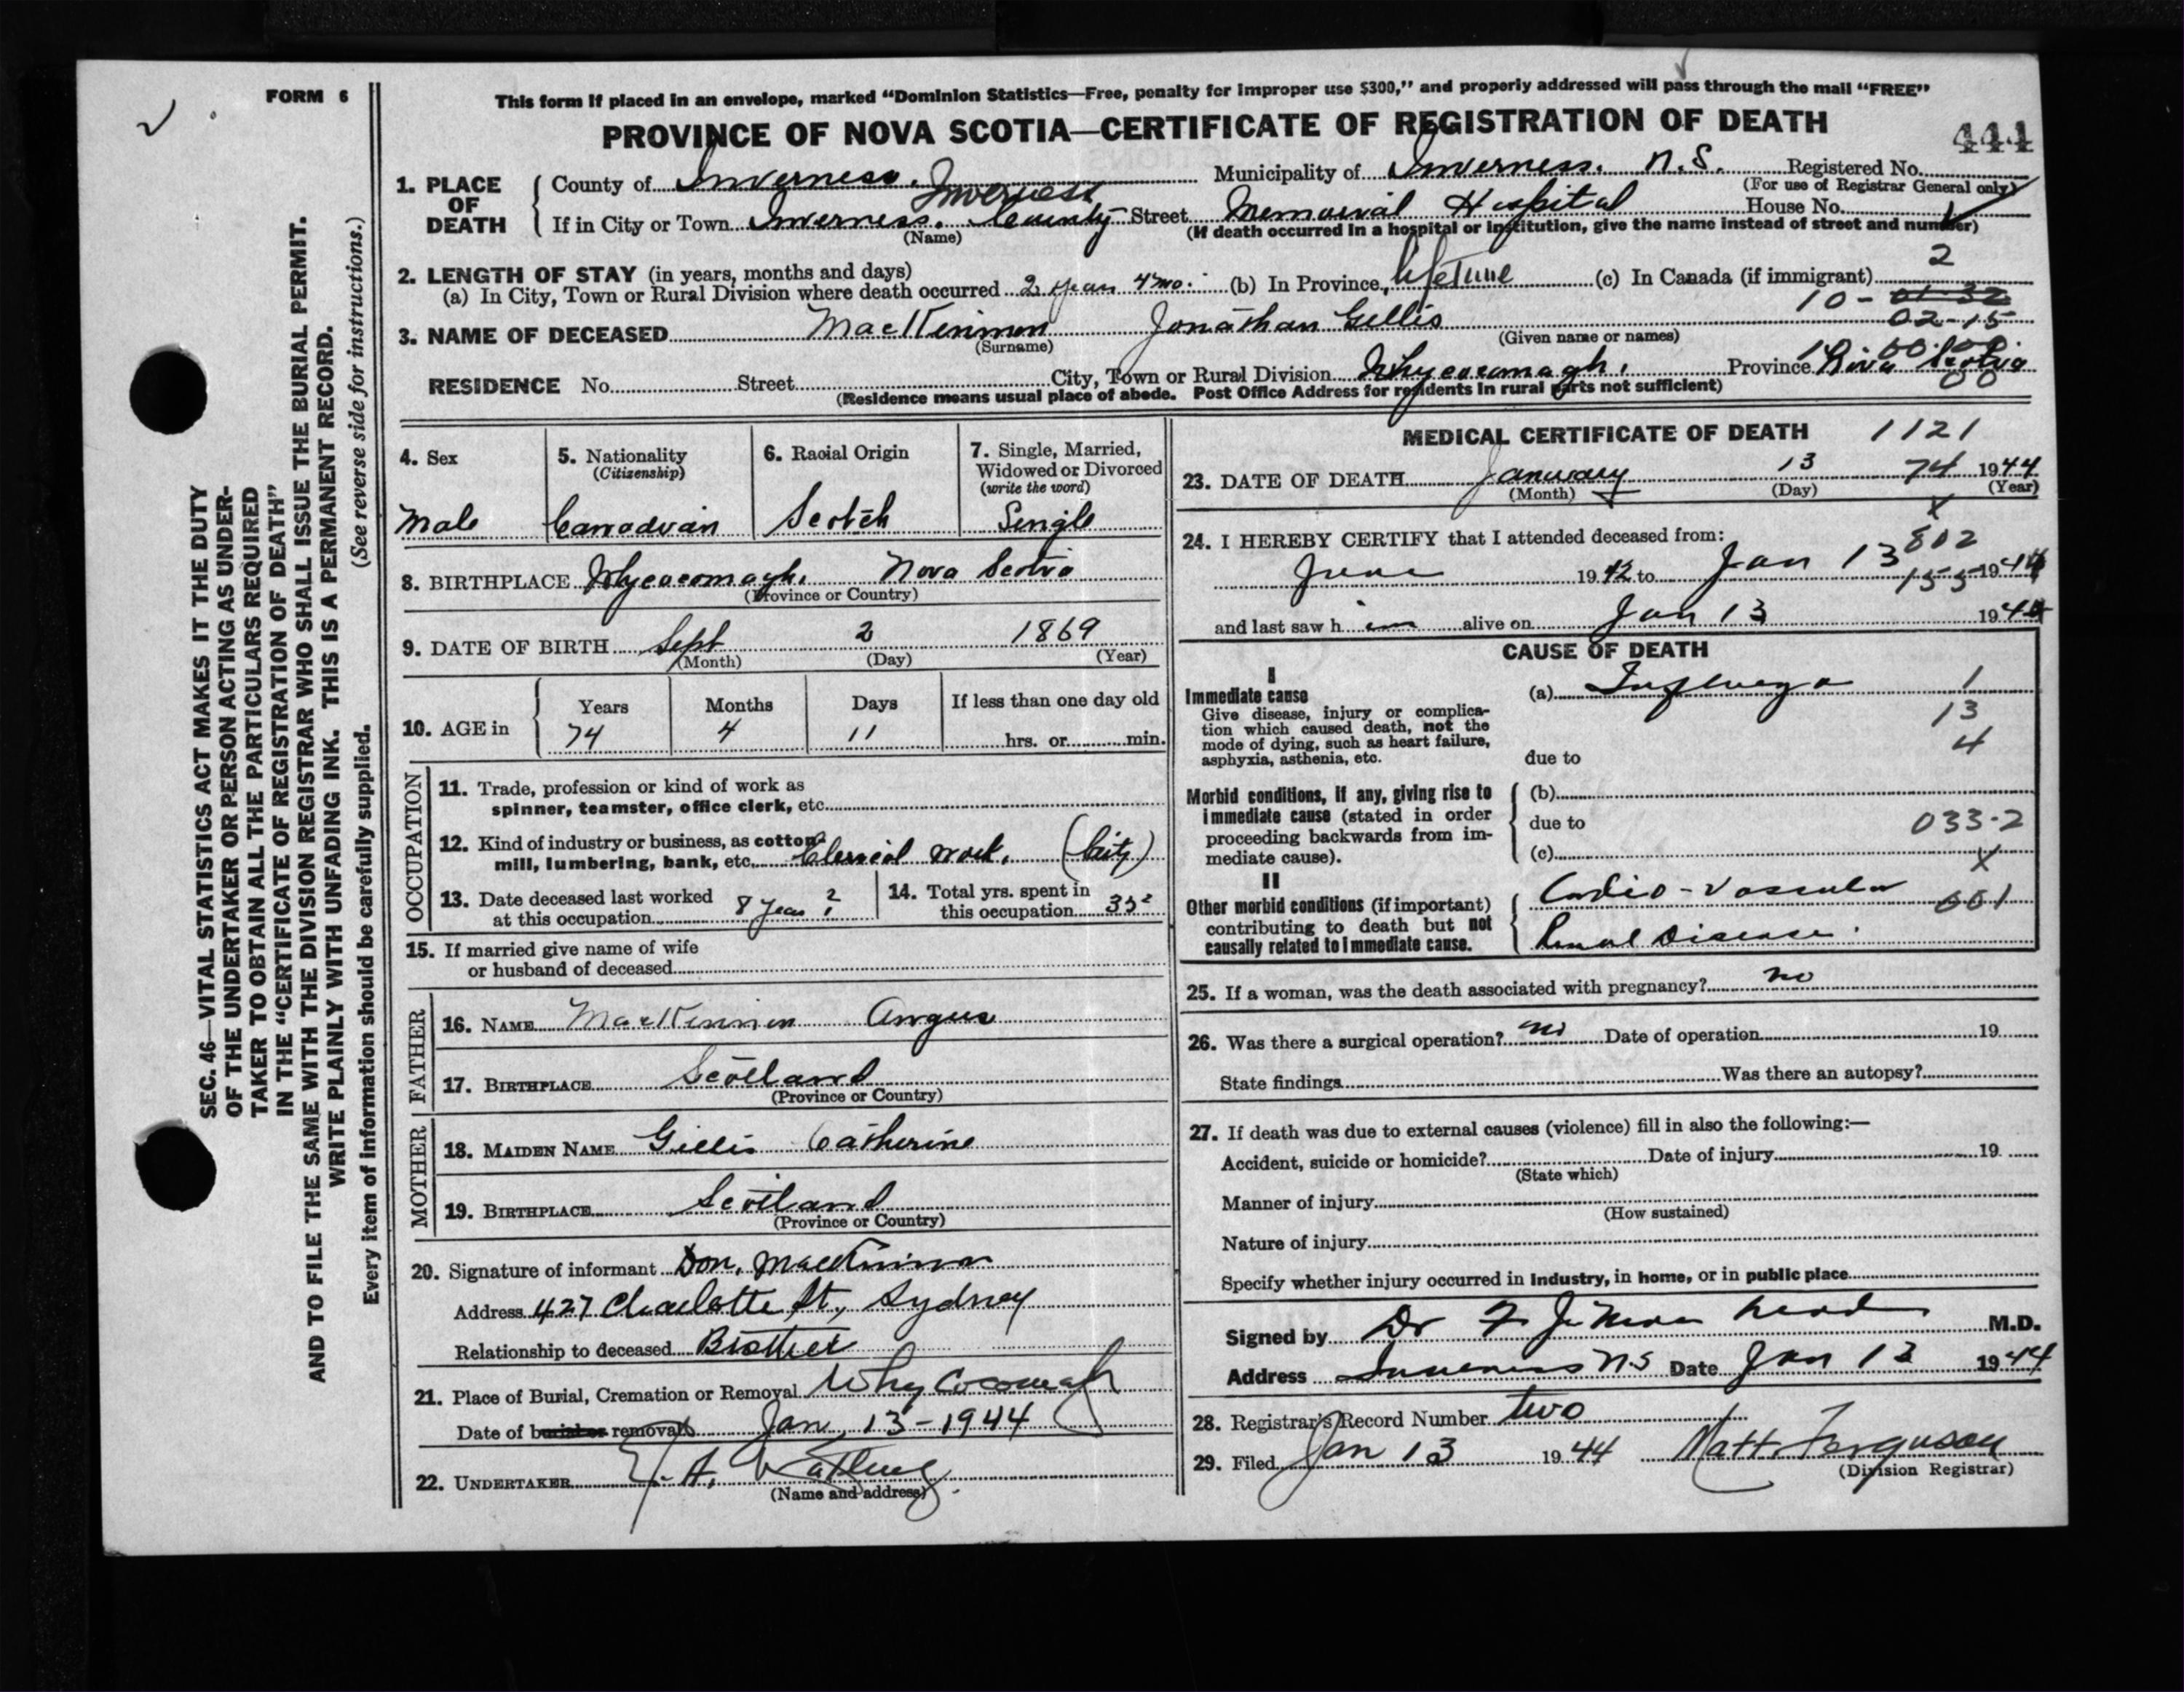 FORM 6
This form if placed in an envelope, marked “Dominion Statistics—Free, penalty for improper use $300,” and properly addressed will pass through the mail “FREE”
PROVINCE OF NOVA SCOTIA—CERTIFICATE OF REGISTRATION OF DEATH
444
1. PLACE OF DEATH
County of Inverness. Municipality of Inverness. N.S. Registered No.
(For use of Registrar General only)
If in City or Town Inverness. Inverness County Street Memorial Hospital House No.
(Name) (If death occurred in a hospital or institution, give the name instead of street and number)
2. LENGTH OF STAY (in years, months and days)
(a) In City, Town or Rural Division where death occurred 2 years 4 mo. (b) In Province, lifetime (c) In Canada (if immigrant) 2
10 - 01-32
02-15
3. NAME OF DECEASED MacKinnon Jonathan Gillis
(Surname) (Given name or names)
RESIDENCE No. Street City, Town or Rural Division Whycocomagh. Province Nova Scotia
00
(Residence means usual place of abode. Post Office Address for residents in rural parts not sufficient)
4. Sex
Male
5. Nationality
(Citizenship)
Canadian
6. Racial Origin
Scotch
7. Single, Married, Widowed or Divorced
(write the word)
Single
8. BIRTHPLACE Whycocomagh. Nova Scotia
(Province or Country)
9. DATE OF BIRTH Sept 2 1869
(Month) (Day) (Year)
10. AGE in
Years Months Days If less than one day old
74 4 11 hrs. or min.
OCCUPATION
11. Trade, profession or kind of work as
spinner, teamster, office clerk, etc.
12. Kind of industry or business, as cotton
mill, lumbering, bank, etc. Clerical work. (City)
13. Date deceased last worked
at this occupation 8 years ?
14. Total yrs. spent in
this occupation 35
15. If married give name of wife
or husband of deceased
FATHER
16. NAME MacKinnon Angus
17. BIRTHPLACE Scotland
(Province or Country)
MOTHER
18. MAIDEN NAME Gillis Catherine
19. BIRTHPLACE Scotland
(Province or Country)
20. Signature of informant Don. MacKinnon
Address 427 Charlotte St., Sydney
Relationship to deceased Brother
21. Place of Burial, Cremation or Removal Whycocomagh
Date of burial or removal Jan, 13-1944
22. UNDERTAKER A.
(Name and address)
MEDICAL CERTIFICATE OF DEATH 1121
23. DATE OF DEATH January 13 74 1944
(Month) (Day) (Year)
X
24. I HEREBY CERTIFY that I attended deceased from: 802
June 1942 to Jan 13 1944
155
and last saw him alive on Jan 13 1944
CAUSE OF DEATH
I
Immediate cause
Give disease, injury or complica-
tion which caused death, not the
mode of dying, such as heart failure,
asphyxia, asthenia, etc.
(a) Influenza 1
13
4
due to
Morbid conditions, if any, giving rise to
immediate cause (stated in order
proceeding backwards from im-
mediate cause).
(b)
due to 033-2
(c) X
II
Other morbid conditions (if important)
contributing to death but not
causally related to immediate cause.
Cardio-Vascular 601
Renal Disease.
25. If a woman, was the death associated with pregnancy? no
26. Was there a surgical operation? no Date of operation 19
State findings Was there an autopsy?
27. If death was due to external causes (violence) fill in also the following:—
Accident, suicide or homicide? Date of injury 19
(State which)
Manner of injury
(How sustained)
Nature of injury
Specify whether injury occurred in industry, in home, or in public place
Signed by Dr M.D.
Address Inverness NS Date Jan 13 1944
28. Registrar's Record Number two
29. Filed Jan 13 1944 Matt. Ferguson
(Division Registrar)
SEC. 46—VITAL STATISTICS ACT MAKES IT THE DUTY
OF THE UNDERTAKER OR PERSON ACTING AS UNDER-
TAKER TO OBTAIN ALL THE PARTICULARS REQUIRED
IN THE “CERTIFICATE OF REGISTRATION OF DEATH”
AND TO FILE THE SAME WITH THE DIVISION REGISTRAR WHO SHALL ISSUE THE BURIAL PERMIT.
WRITE PLAINLY WITH UNFADING INK. THIS IS A PERMANENT RECORD.
(See reverse side for instructions.)
Every item of information should be carefully supplied.